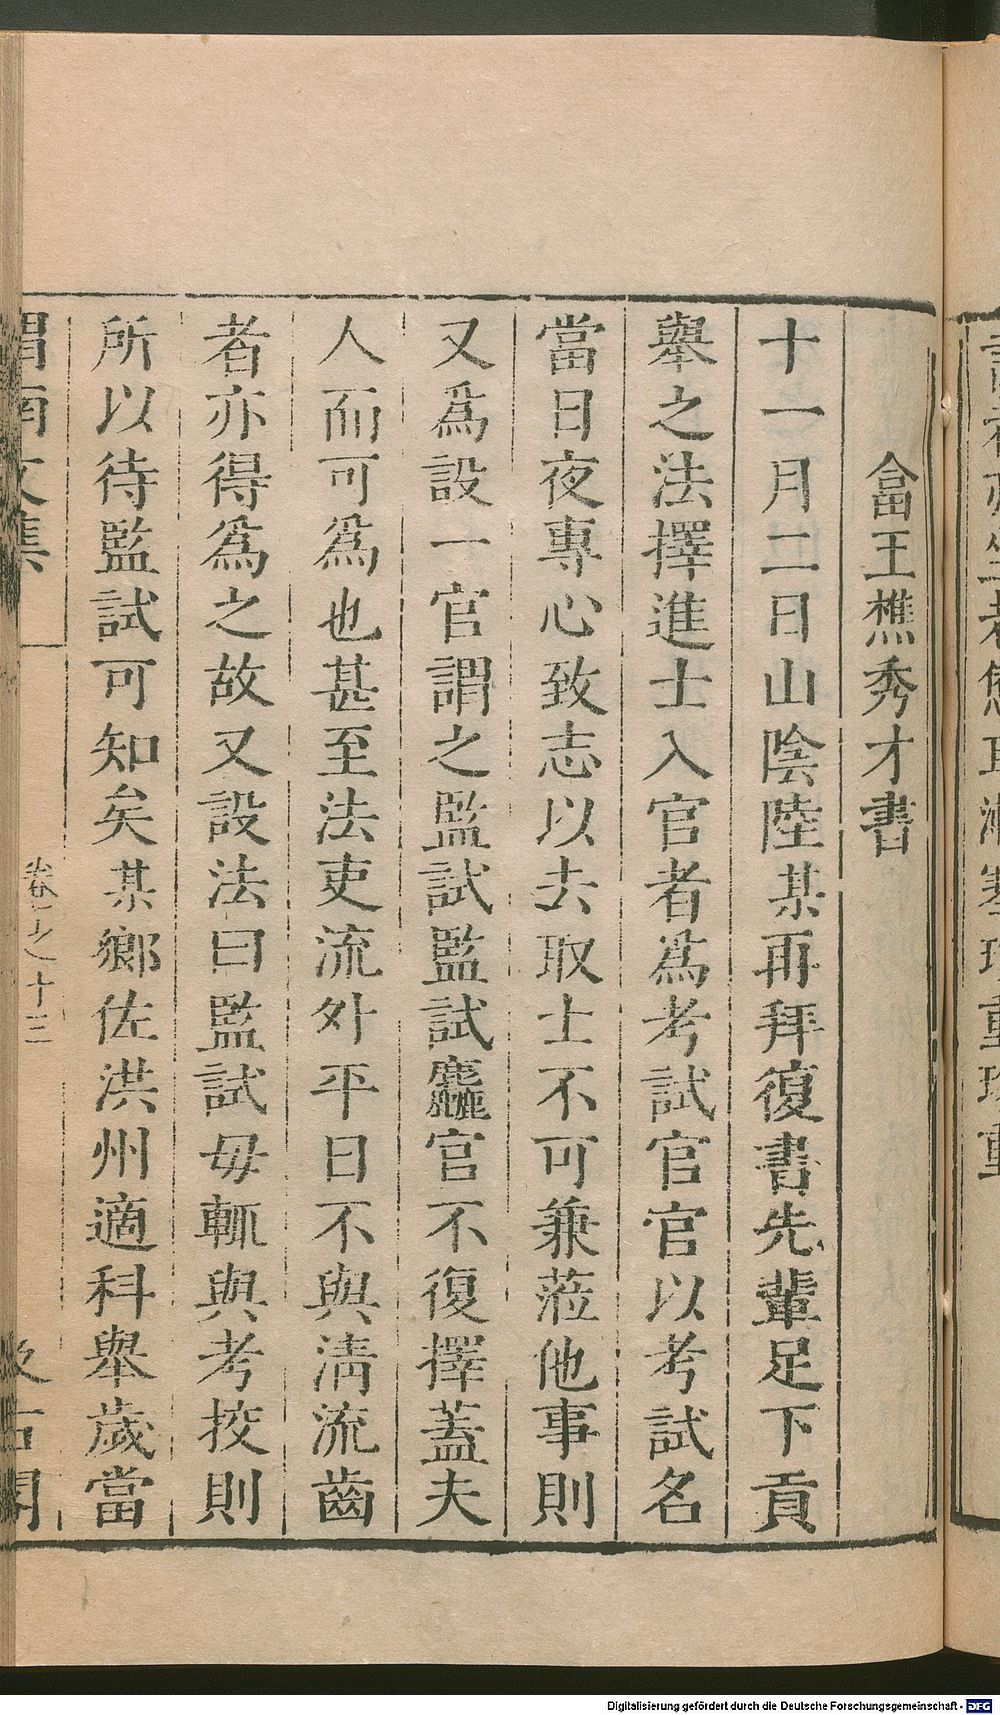 畣王樵秀才書
十一月二日山陰陸某再拜復書先輩足下貢
舉之法擇進士入官者爲考試官官以考試名
當日夜專心致志以去取士不可兼蒞他事則
又爲設一官謂之監試監試麤官不復擇蓋夫
人而可爲也甚至法吏流外平日不與淸流齒
者亦得爲之故又設法曰監試毋輒與考挍則
所以待監試可知矣某鄉佐洪州適科舉歲當
渭南文集
卷之十三
汲古閣
Digitalisierung gefördert durch die Deutsche Forschungsgemeinschaft - DFG